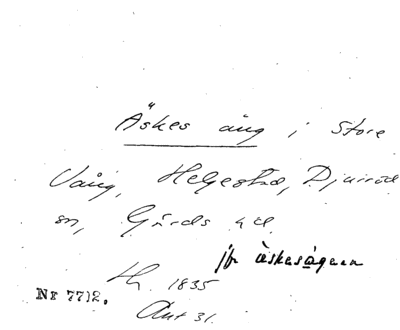 Äskes äng i Store
Vång, Helgestad, Djurröd
sn, Gärds hd.
jfr äskesågern
Th. 1835
Nr 7712.
Akt 31.